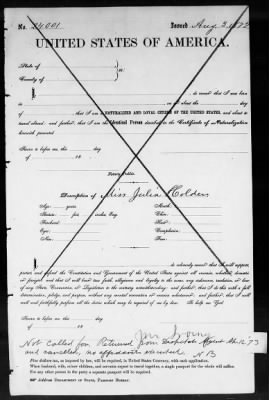 No. 24001 Issued Aug 5 1872
UNITED STATES OF AMERICA.
State of
County of } ss:
I, do swear that I was born
in on or about the day
of , that I am a NATURALIZED AND LOYAL CITIZEN OF THE UNITED STATES, and about to
travel abroad; and further, that I am the Identical Person described in the Certificate of Naturalization
herewith presented.
Sworn to before me, this day
of 18 .
Notary Public.
Description of Miss Julia Holden
Age: years Mouth:
Stature: feet inches, Eng. Chin:
Forehead: Hair:
Eyes: Complexion:
Nose: Face:
I, do solemnly swear that I will support,
protect, and defend the Constitution and Government of the United States against all enemies, whether domestic
or foreign; and that I will bear true faith, allegiance, and loyalty to the same, any ordinance, resolution, or
law of any State, Convention, or Legislature to the contrary notwithstanding; and further, that I do this with a full
determination, pledge, and purpose, without any mental reservation or evasion whatsoever; and further, that I will
well and faithfully perform all the duties which may be required of me by law: So help me God.
Sworn to before me, this day
of 18 .
Not Called for. Returned from Despatch Agent 12 73
and cancelled, no affidavits executed N B
For this paper, as required by law, will be issued.
When husband, wife, minor children, and servants expect to travel together, a single passport for the whole will suffice.
For any other person in the party a separate passport will be required.
Address DEPARTMENT OF STATE, PASSPORT BUREAU.